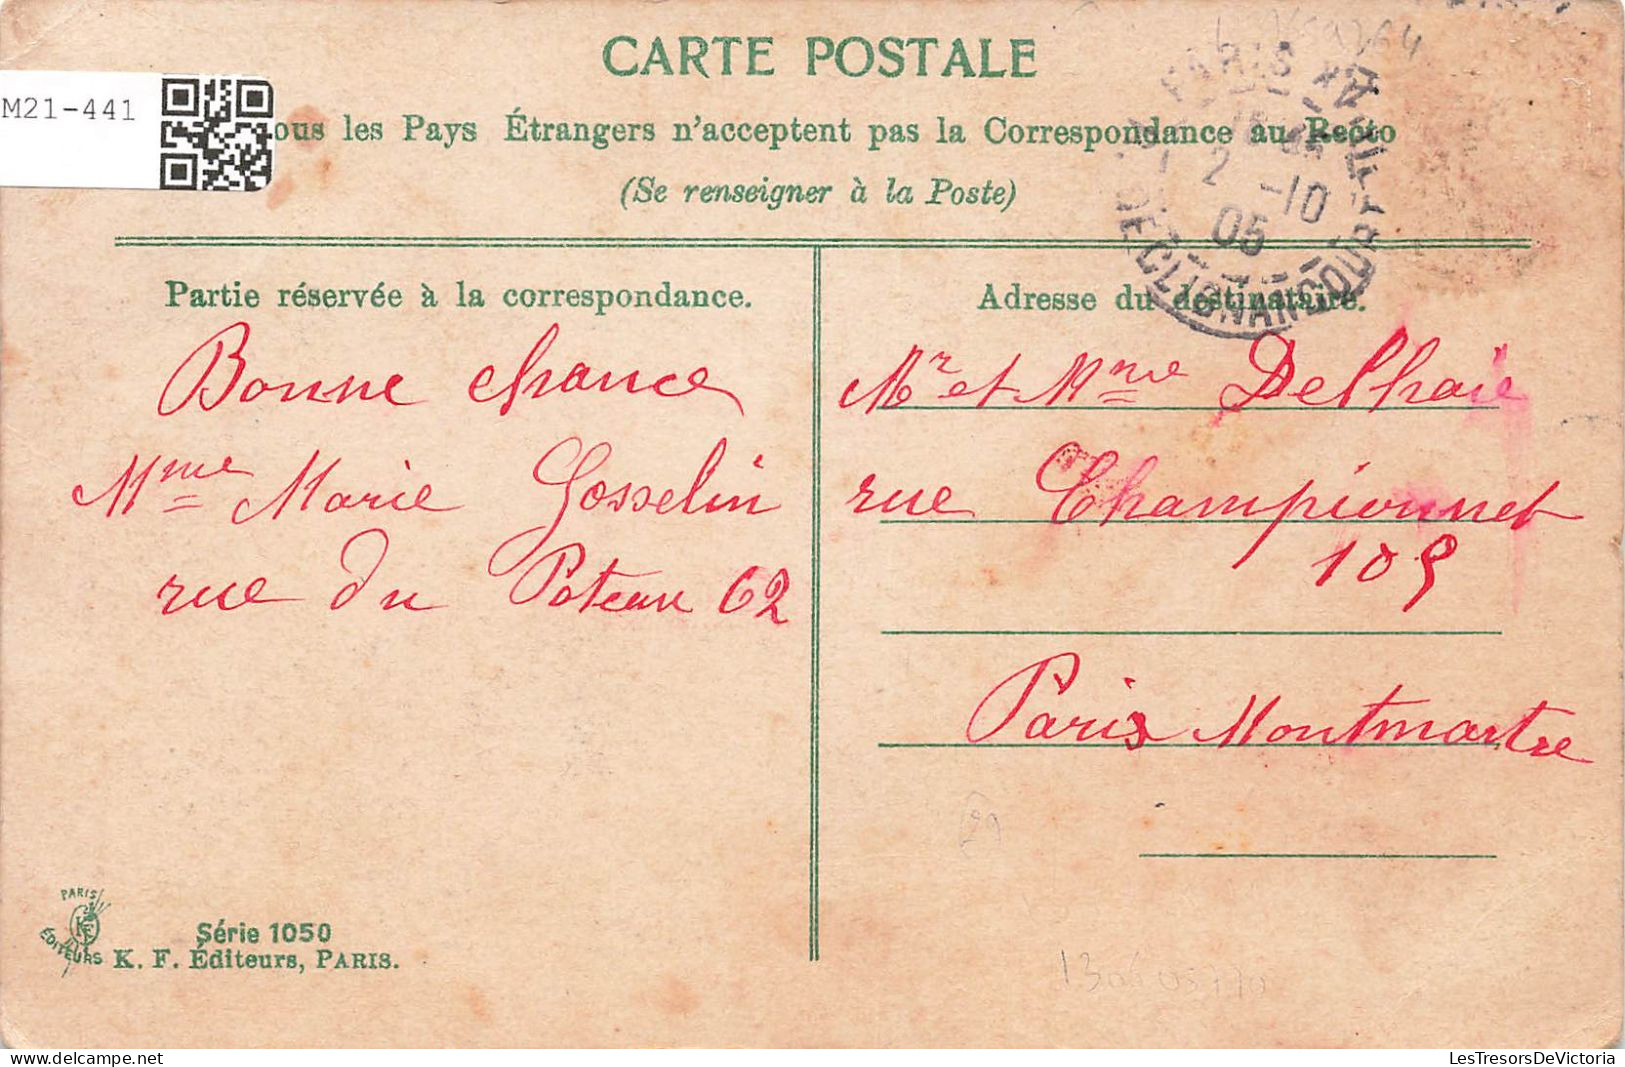 CARTE POSTALE
M21-441
ous les Pays Étrangers n'acceptent pas la Correspondance au Recto
(Se renseigner à la Poste)
PARIS XVIII
2 -10
05
DE CLIGNANCOURT
Partie réservée à la correspondance.
Bonne chance
Mme Marie Gosselin
rue du Poteau 62
Adresse du destinataire.
Mr et Mme Delhaie
rue Championnet
109
Paris Montmartre
PARIS
KF
ÉDITEURS
Série 1050
K. F. Éditeurs, PARIS.
LesTresorsDeVictoria